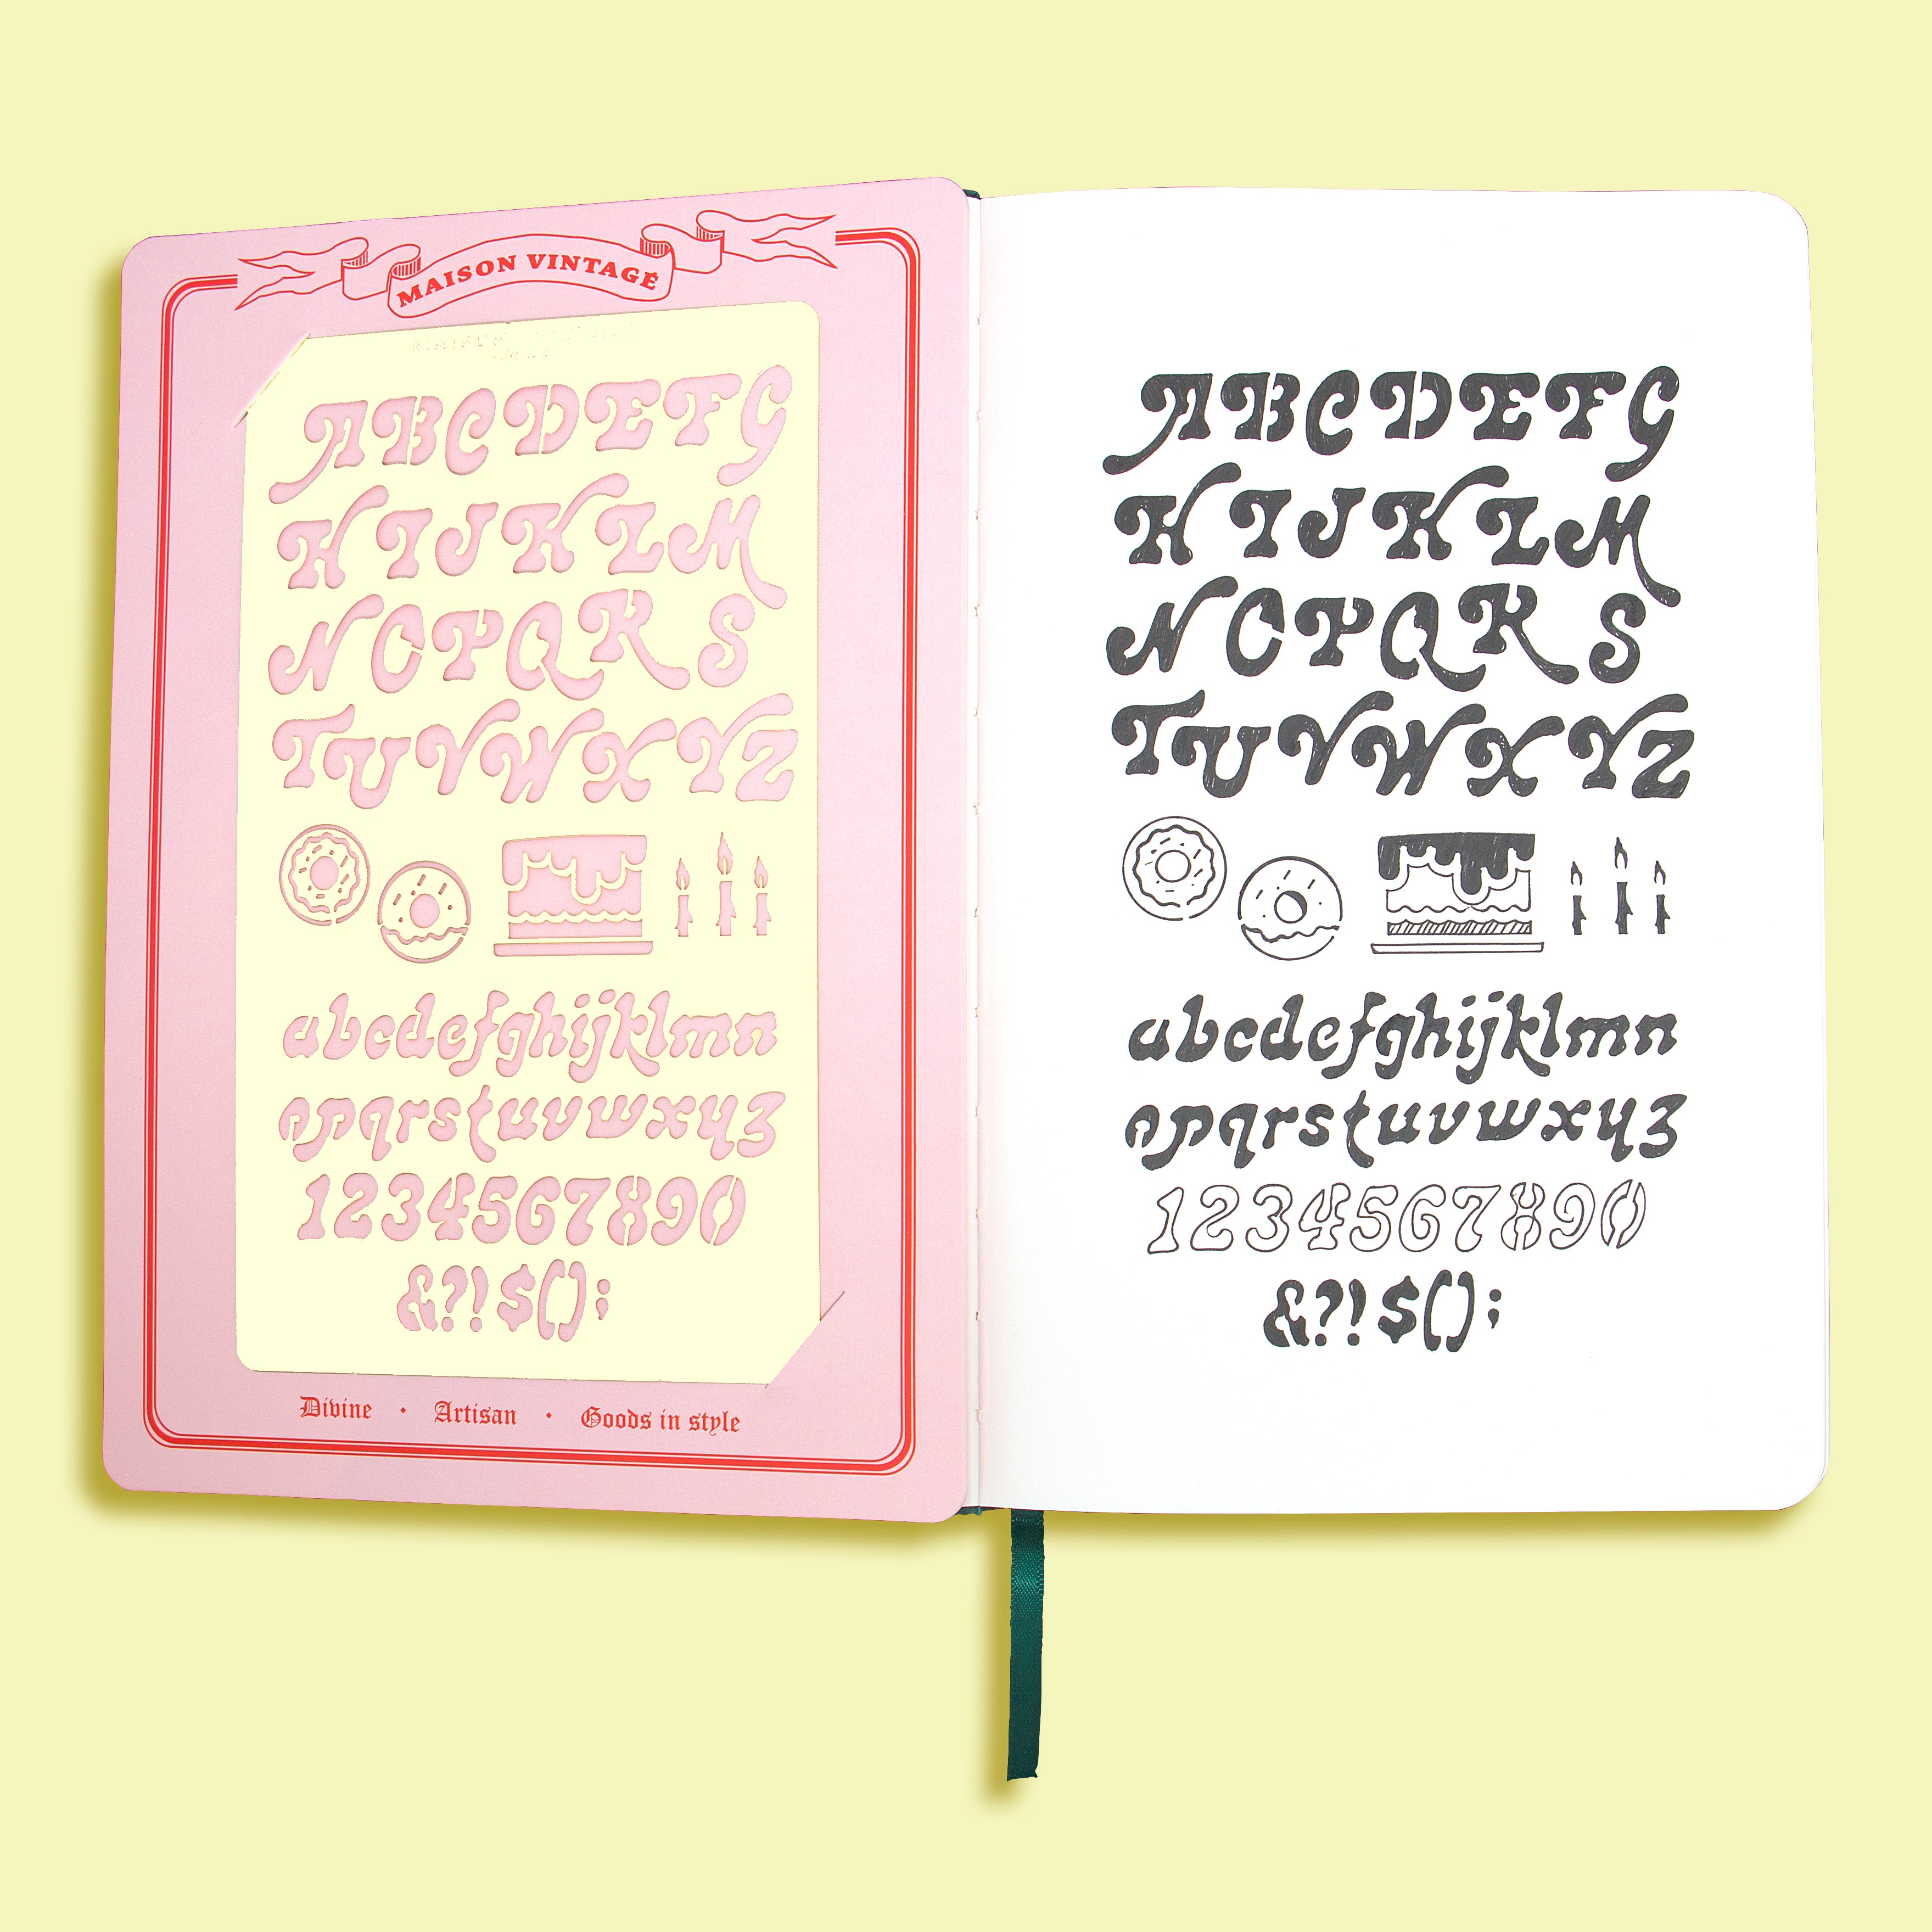 MAISON VINTAGÉ
ABCDEFG
HIJKLM
NOPQRS
TUVWXYZ
abcdefghijklmn
opqrstuvwxyz
1234567890
&?!$();
Divine · Artisan · Goods in style
ABCDEFG
HIJKLM
NOPQRS
TUVWXYZ
abcdefghijklmn
opqrstuvwxyz
1234567890
&?!$();